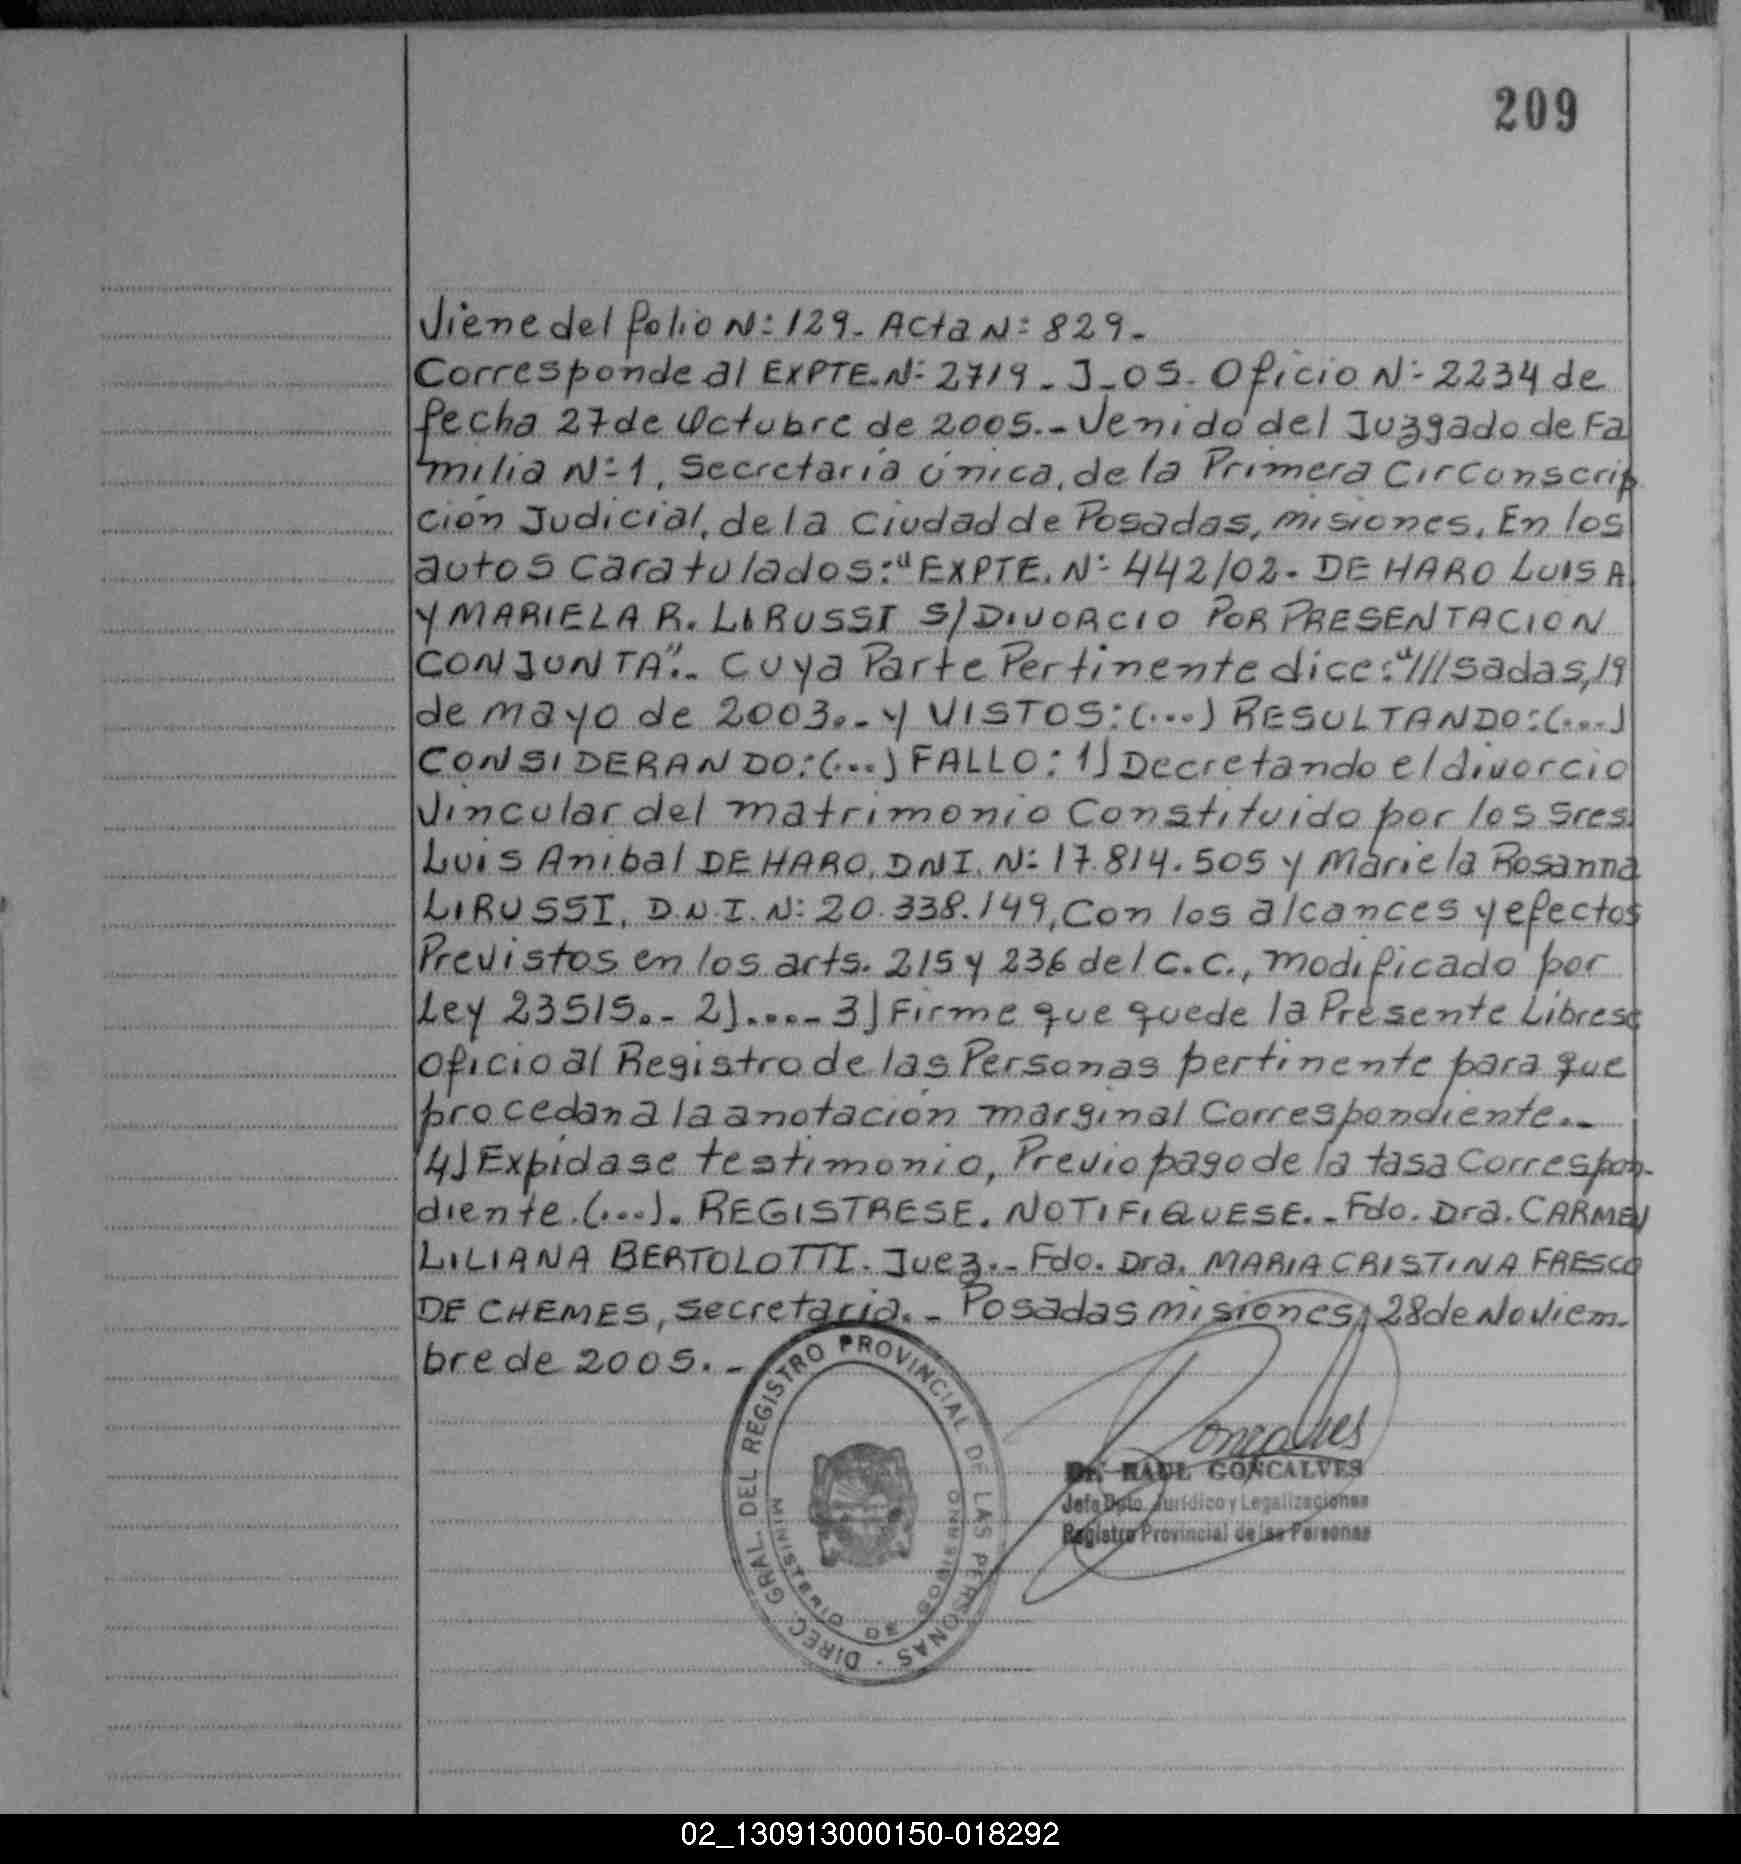 209
Viene del folio N: 129. Acta N: 829.-
Corresponde al EXPTE. N: 2719 - J - 05. Oficio N: 2234 de
fecha 27 de Octubre de 2005.- Venido del Juzgado de Fa
milia N: 1, Secretaría única, de la Primera Circonscrip
ción Judicial, de la Ciudad de Posadas, Misiones, En los
autos Caratulados: "EXPTE. N: 442/02. DE HARO LUIS A
Y MARIELA R. LIRUSSI S/ DIVORCIO POR PRESENTACION
CONJUNTA".- Cuya Parte Pertinente dice: "///sadas, 19
de mayo de 2003.- Y VISTOS: (...) RESULTANDO: (...)
CONSIDERANDO: (...) FALLO: 1) Decretando el divorcio
Vincular del matrimonio Constituido por los Sres.
Luis Anibal DE HARO, DNI. N: 17.814.505 y Mariela Rosanna
LIRUSSI, D.N.I. N: 20.338.149, Con los alcances y efectos
Previstos en los arts. 215 y 236 del C.C., modificado por
Ley 23515.- 2)....- 3) Firme que quede la Presente Librese
oficio al Registro de las Personas pertinente para que
procedan a la anotación marginal Correspondiente.-
4) Expídase testimonio, Previo pago de la tasa Correspon-
diente. (...). REGISTRESE. NOTIFIQUESE.- Fdo. Dra. CARMEN
LILIANA BERTOLOTTI. Juez.- Fdo. Dra. MARIA CRISTINA FRESCO
DE CHEMES, Secretaria.- Posadas Misiones, 28 de Noviem-
bre de 2005.-
DIREC. GRAL. DEL REGISTRO PROVINCIAL DE LAS PERSONAS ·
MINISTERIO DE GOBIERNO
Goncalves
Dr. RAUL GONCALVES
Jefe Dpto. Jurídico y Legalizaciones
Registro Provincial de las Personas
02_130913000150-018292